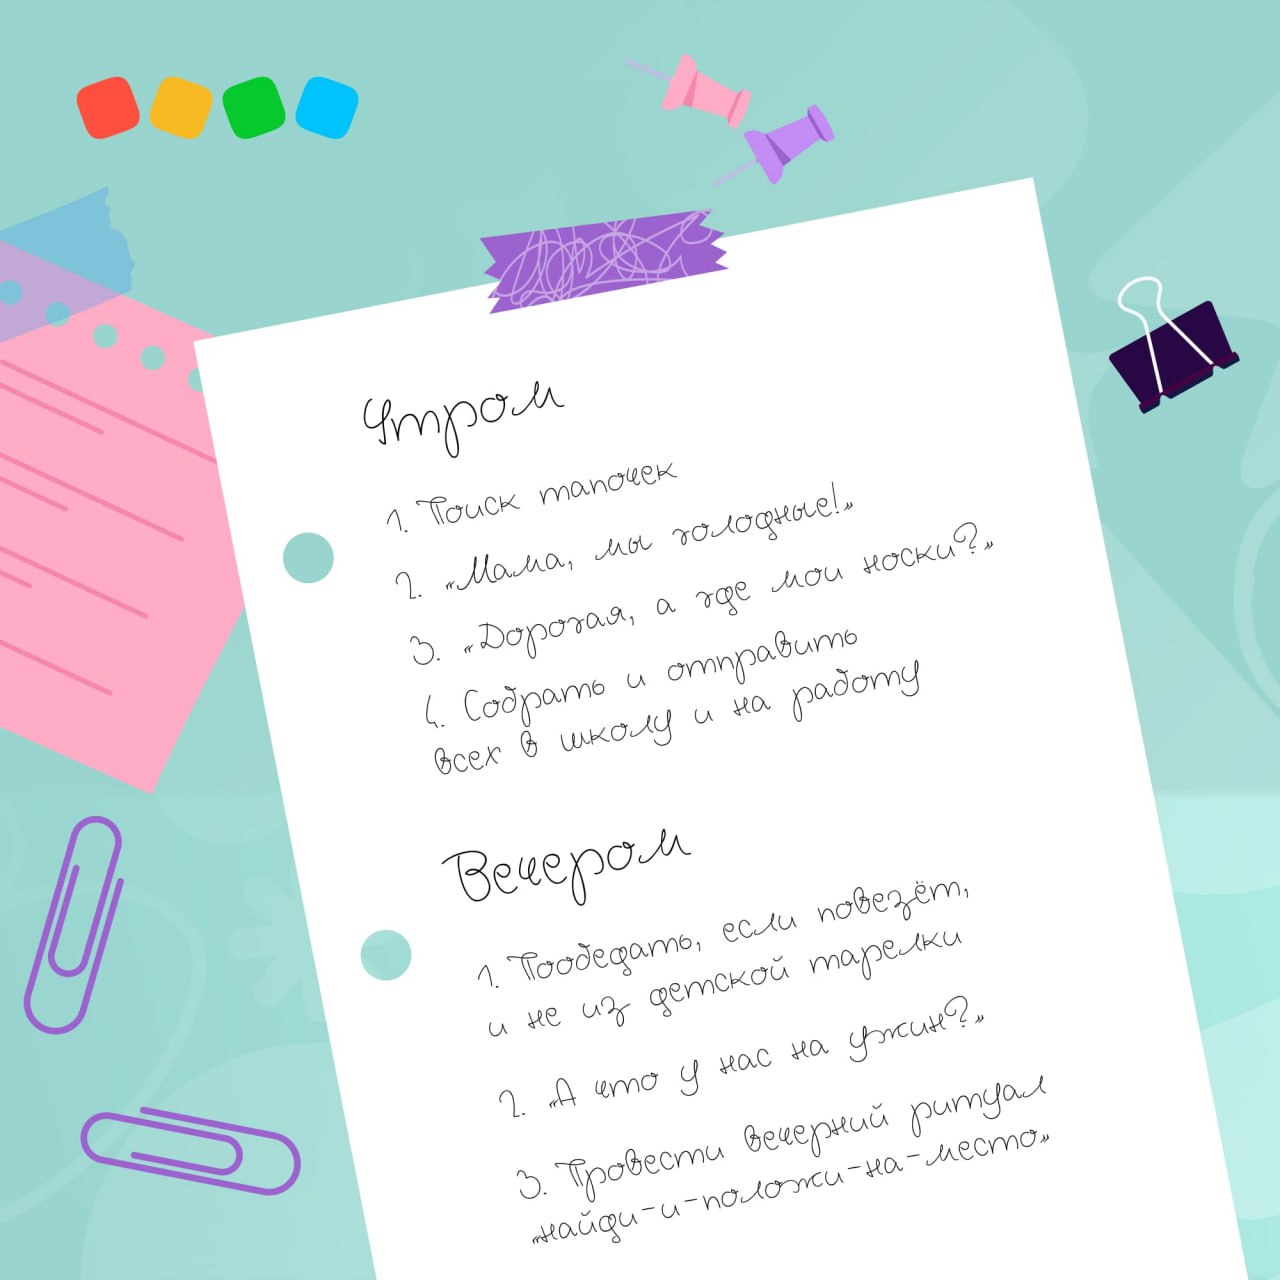 Утром
1. Поиск тапочек
2. «Мама, мы голодные!»
3. «Дорогая, а где мои носки?»
4. Собрать и отправить
всех в школу и на работу
Вечером
1. Пообедать, если повезёт,
и не из детской тарелки
2. «А что у нас на ужин?»
3. Провести вечерний ритуал
«найди-и-положи-на-место»